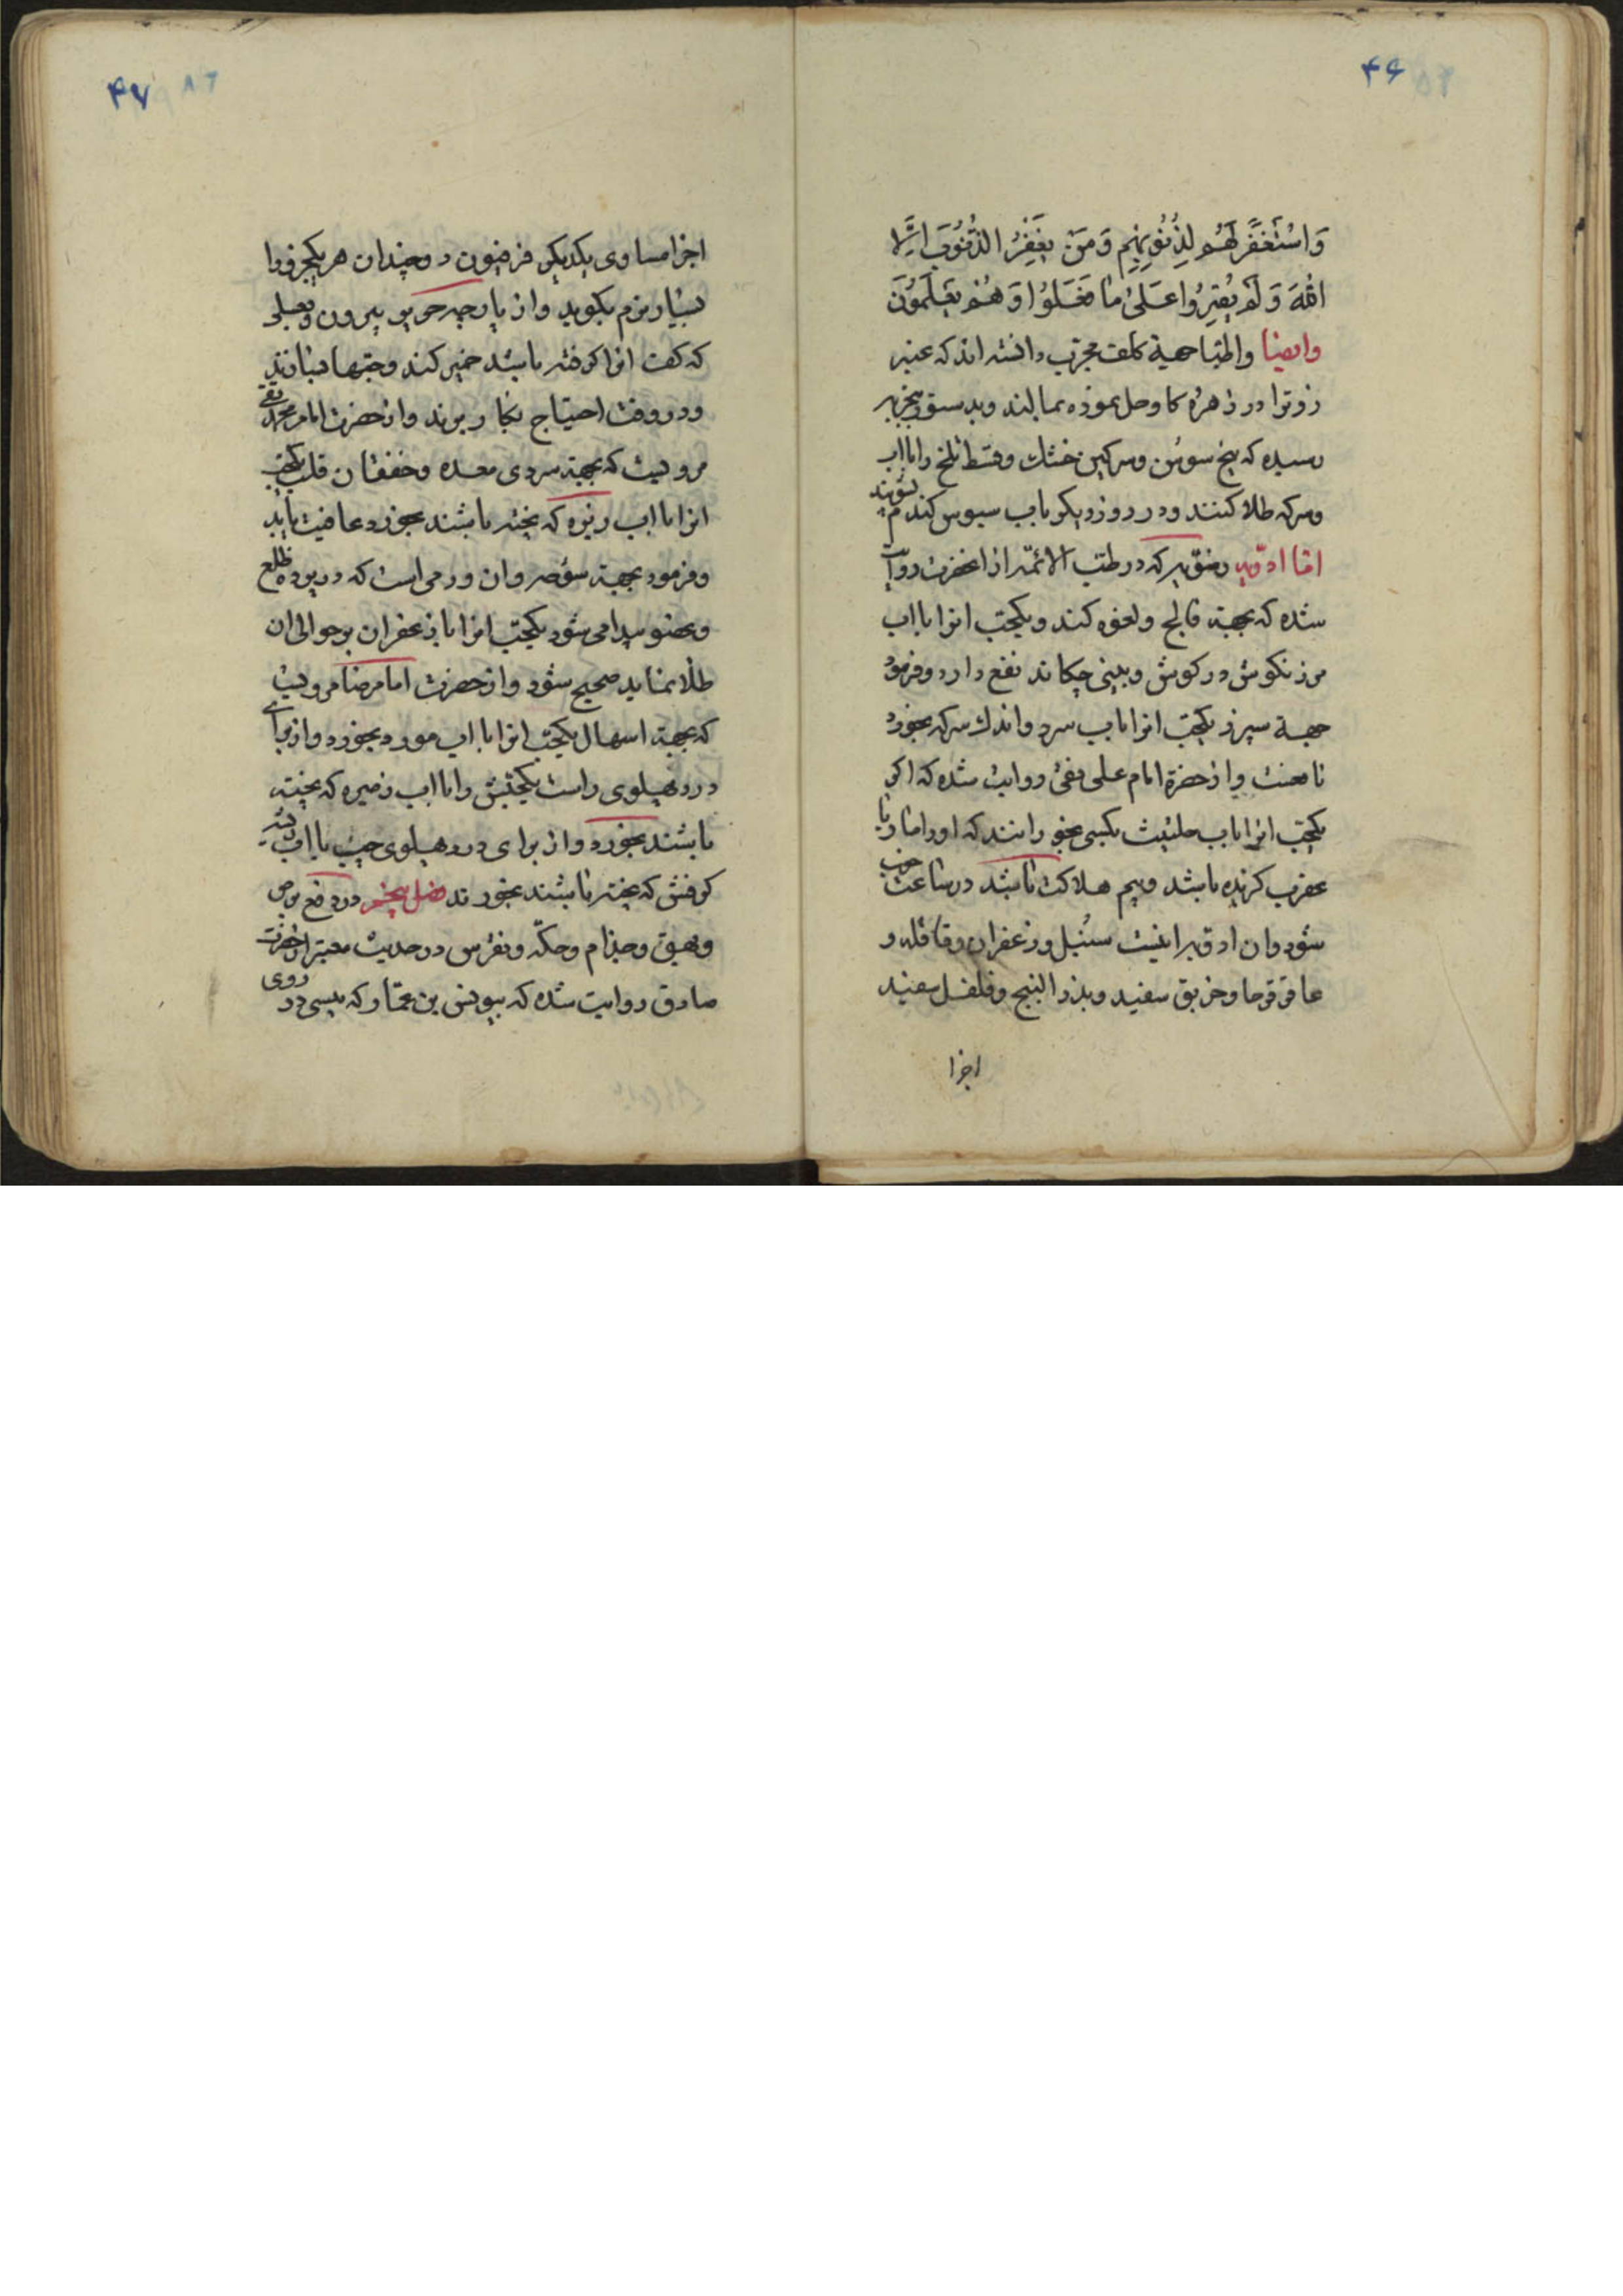 ۴۶
وَاسْتَغْفَرَ لَهُم لِذُنُوبِهِم وَمَنْ يَغْفِرُ الذُّنُوبَ اِلَّا
اللّٰهَ وَلَمْ يُصِرُّوا عَلَىٰ مَا فَعَلُوا وَهُمْ يَعْلَمُونَ
وایضا واطبا جهة کلف مجرب دانسته‌اند که عنبر
زوترا در زهره کاو حل نموده بمالند وبدستور بتجربه
رسیده که بیخ سوسن وسرکین خشك وقسط تلخ را باآب
وسرکه طلا کنند ودر روز دیکر باب سبوس کندم بشویند
اما ادویه که در طب الائمه از انحضرت روایت
شده که بجهة فالج ولقوه کند ویکحب انرا باآب
مرزنکوش در کوش وبینی چکاند نفع دارد وفرمود
جهة سپرز یکحب انرا باب سرد واندك سرکه بخورد
نافعست واز حضرة امام علی نقی روایت شده که اکر
یکحب انرا باب حلتیت بکسی بخورانند که اورا مار یا
عقرب کزیده باشد وبیم هلاکت باشد در ساعت خوب
شود وان ادویه اینست سنبل وزعفران وقاقله و
عاقرقرحا وخربق سفید وبذر البنج وفلفل سفید
اجزا
۴۷
اجزا مساوی یکدیکر فرفیون دوچندان هر یکجزو را
بسیار نرم بکوبد واز پارچه حریر بیرون وبعسلی
که کف انرا کرفته باشد خمیر کند وحبها بسازند
ودر وقت احتیاج بکار برند واز حضرت امام محمد تقی
مرویست که بجهة سردی معده وخفقان قلب یکحب
انرا باآب زیره که پخته باشند بخورد عافیت یابد
وفرمود بجهة شوصه وان ورمی است که در پرده ضلع
وعضو پیدا می شود یکحب انرا با زعفران بر حوالی ان
طلا نماید صحیح شود واز حضرت امام رضا مرویست
که بجهة اسهال یکحب انرا باآب مورد بخورد واز برای
درد پهلوی راست یکحبش را باآب زیره که پخته
باشند بخورد واز برای درد پهلوی چپ باآب ریشه
کرفش که پخته باشند بخورند فصل پنجم در دفع برص
وبهق وجذام وحکه ونقرس در حدیث معتبر از حضرت
صادق روایت شده که بیونس بن عمار که پیسی در روی